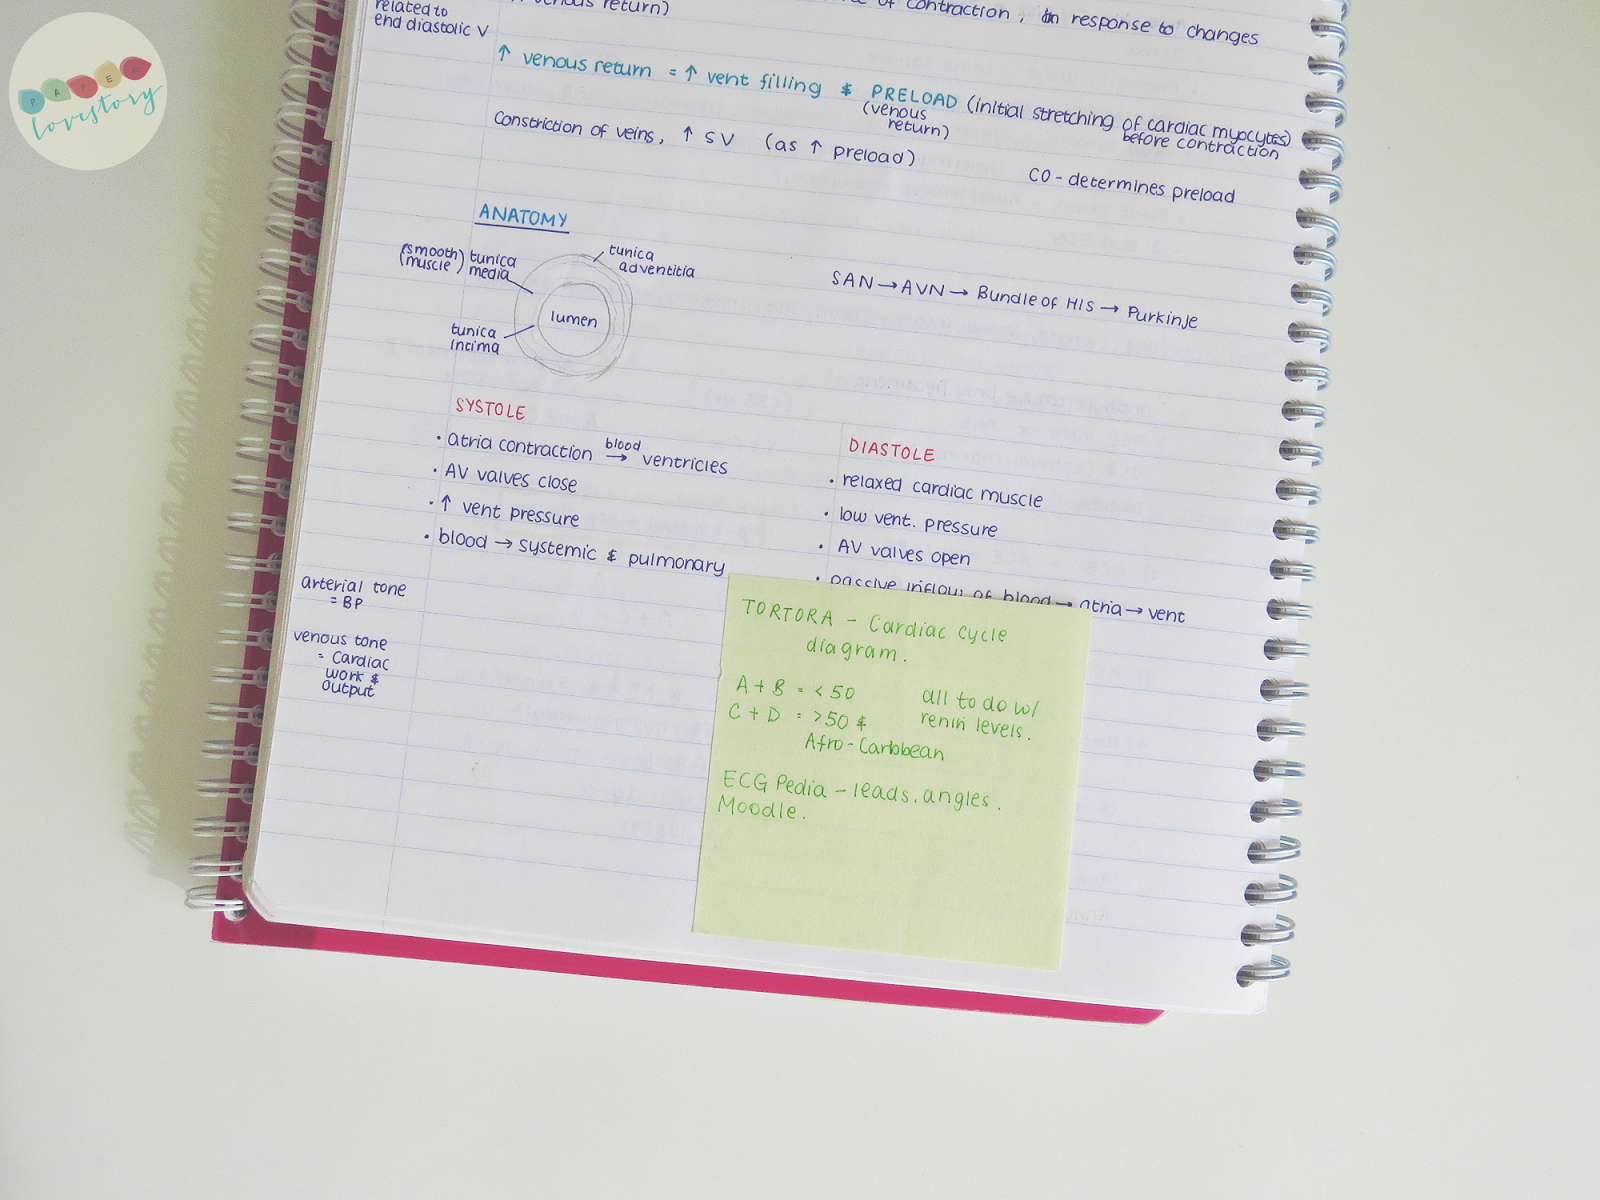 PAPER
lovestory
related to
end diastolic V
venous return)
of contraction, in response to changes
↑ venous return = ↑ vent filling & PRELOAD (initial stretching of cardiac myocytes)
before contraction
(venous
return)
Constriction of veins, ↑ SV (as ↑ preload)
CO - determines preload
ANATOMY
(smooth
muscle) tunica
media
tunica
adventitia
lumen
tunica
intima
SAN → AVN → Bundle of HIS → Purkinje
SYSTOLE
· atria contraction blood → ventricles
· AV valves close
· ↑ vent pressure
· blood → systemic & pulmonary
DIASTOLE
· relaxed cardiac muscle
· low vent. pressure
· AV valves open
· passive inflow of blood → atria → vent
arterial tone
= BP
venous tone
= cardiac
work &
output
TORTORA - Cardiac cycle
diagram.
A + B = < 50
C + D = > 50 &
Afro-Caribbean
all to do w/
renin levels.
ECG Pedia - leads, angles.
Moodle.